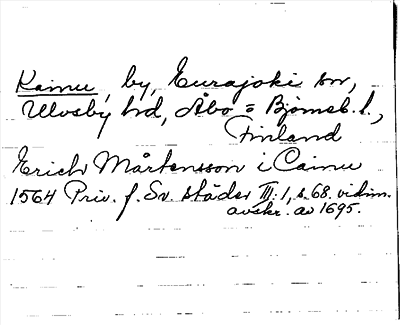 Kainu, by, Eurajoki sn,
Ulvsby hd, Åbo = Björneb. l.,
Finland
Erich Mårtensson i Cainu
1564 Priv. f. Sv. städer III: 1, s. 68. vidim.
avskr. av 1695.